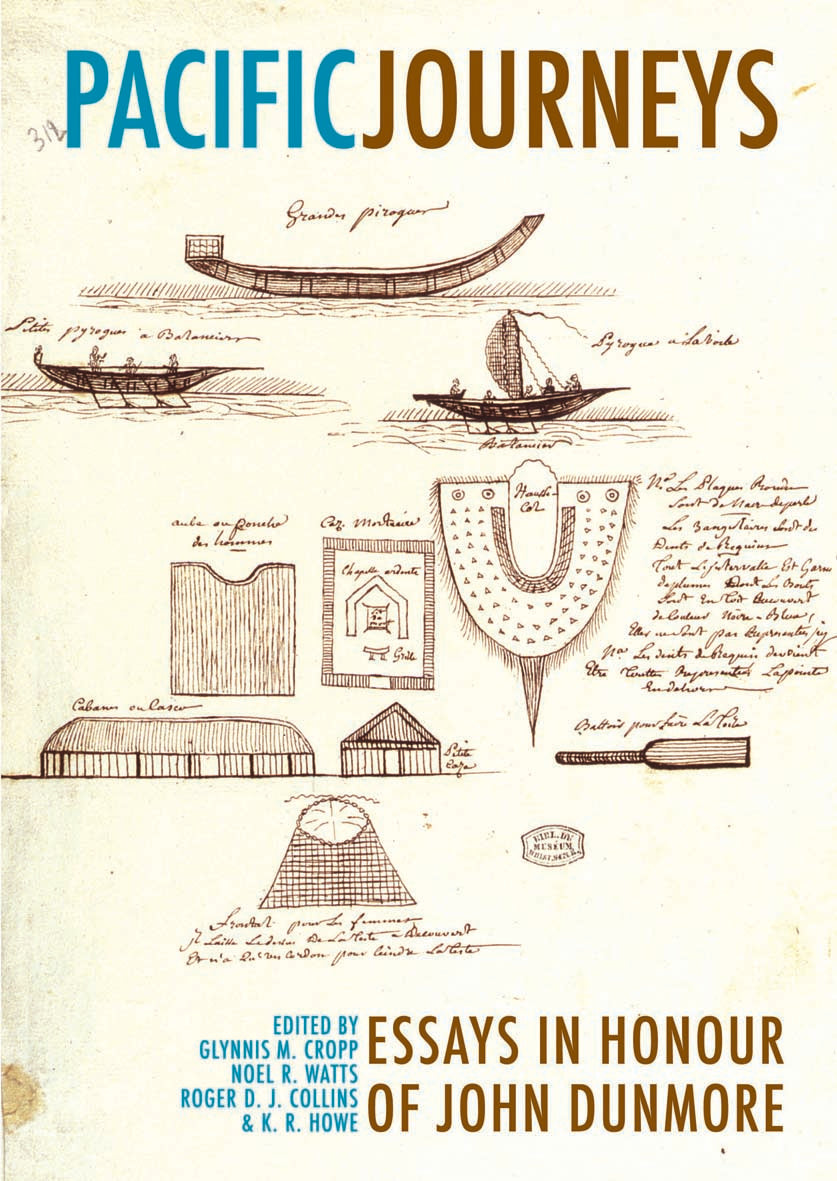 PACIFICJOURNEYS
312
Grandes pirogues
Petites pyrogues a Balanciers
Pyrogue a la Voile
Balancier
Hausse
Col
No Les Plaques Rondes
Sont de Nacre de perle
Les Trangulaires Sont des
Dents de Requins
Tout L'intervalle Est Garni
de plumes Dont Les Bouts
Sont En Toit Recouvert
de Couleur Noire - Bleue
Elles ne Sont pas Representées
Na Les dents de Requin devroient
Etre Toutes Representées La pointe
En dehors
aube ou Poncho
des hommes
Caz. Mortuaire
Chapelle ardente
Grille
Cabanes ou Cases
Petite
Caze
Battoir pour faire La Toile
BIBL. DU
MUSÉUM
Frontal pour Les femmes
Il Laisse Le dessus De La Teste a Decouvert
Et n'a Qu'un Cordon pour Ceindre La Teste
EDITED BY
GLYNNIS M. CROPP
NOEL R. WATTS
ROGER D. J. COLLINS
& K. R. HOWE
ESSAYS IN HONOUR
OF JOHN DUNMORE